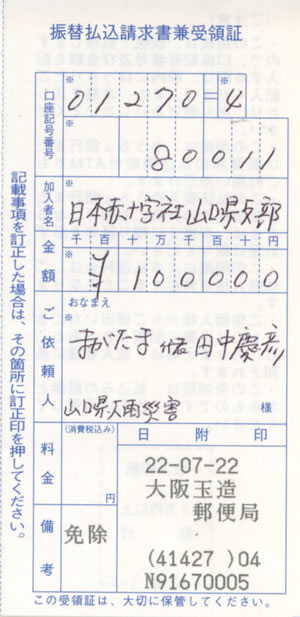 振替払込請求書兼受領証
口座記号番号
※
01270=4
※
80011
加入者名
※
日本赤十字社山口県支部
金額
千百十万千百十円
※
¥100000
ご依頼人
おなまえ
※
田中慶彦
山口県大雨災害
様
料金
(消費税込み)
円
日附印
22-07-22
大阪玉造
郵便局
(41427 )04
N91670005
備考
免除
記載事項を訂正した場合は、その箇所に訂正印を押してください。
この受領証は、大切に保管してください。